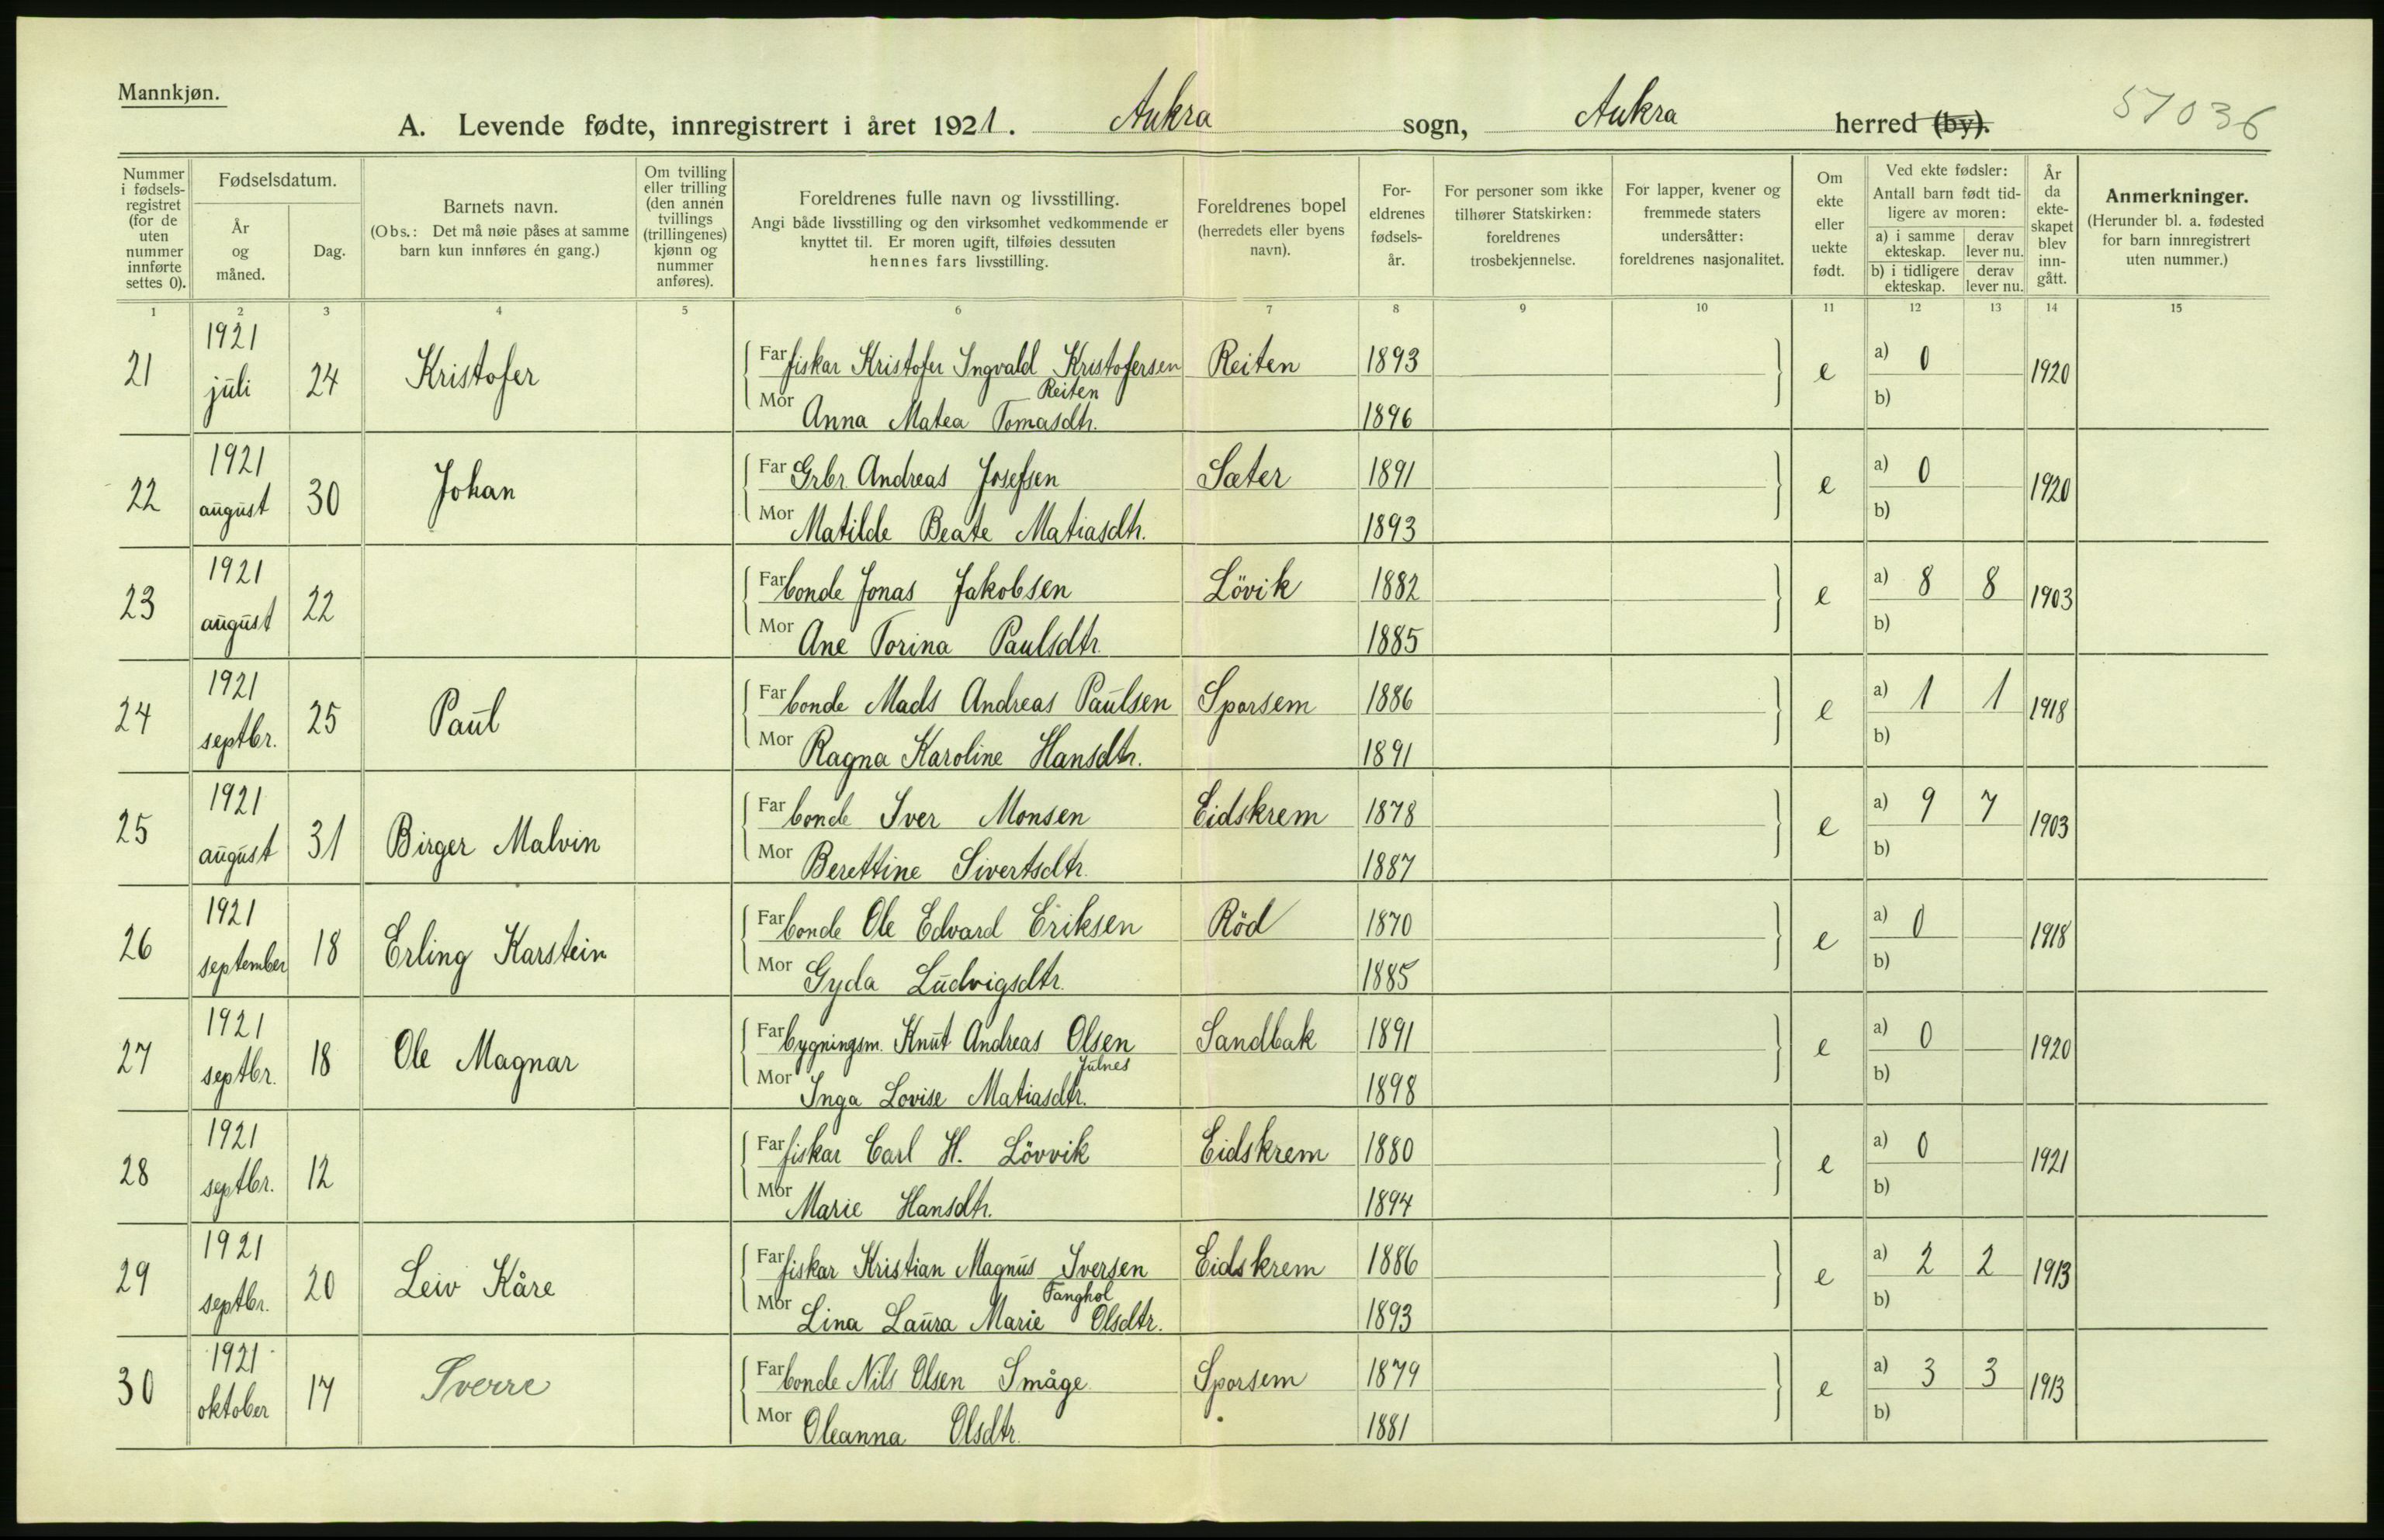 Mannkjøn.
A. Levende fødte, innregistrert i året 1921. Aukra sogn, Aukra herred (by).
51036
Nummer i fødsels-registret (for de uten nummer innførte settes 0).
Fødselsdatum.
År og måned.
Dag.
Barnets navn.
(Obs.: Det må nøie påses at samme barn kun innføres én gang.)
Om tvilling eller trilling (den annen tvillings (trillingenes) kjønn og nummer anføres).
Foreldrenes fulle navn og livsstilling.
Angi både livsstilling og den virksomhet vedkommende er knyttet til. Er moren ugift, tilføies dessuten hennes fars livsstilling.
Foreldrenes bopel (herredets eller byens navn).
For-eldrenes fødsels-år.
For personer som ikke tilhører Statskirken: foreldrenes trosbekjennelse.
For lapper, kvener og fremmede staters undersåtter: foreldrenes nasjonalitet.
Om ekte eller uekte født.
Ved ekte fødsler: Antall barn født tid-ligere av moren:
a) i samme ekteskap. derav lever nu.
b) i tidligere ekteskap. derav lever nu.
År da ekte-skapet blev inn-gått.
Anmerkninger.
(Herunder bl. a. fødested for barn innregistrert uten nummer.)
1 2 3 4 5 6 7 8 9 10 11 12 13 14 15
21 1921 juli 24 Kristofer Far fiskar Kristofer Ingvald Kristofersen Reiten Reiten 1893 e a) 0 1920
Mor Anna Matea Tomasdtr. 1896 b)
22 1921 august 30 Johan Far Grbr. Andreas Josefsen Sæter 1891 e a) 0 1920
Mor Matilde Beate Matiasdtr. 1893 b)
23 1921 august 22 Far bonde Jonas Jakobsen Lövik 1882 e a) 8 8 1903
Mor Ane Torina Paulsdtr. 1885 b)
24 1921 septbr. 25 Paul Far bonde Mads Andreas Paulsen Sporsem 1886 e a) 1 1 1918
Mor Ragna Karoline Hansdtr. 1891 b)
25 1921 august 31 Birger Malvin Far bonde Iver Monsen Eidskrem 1878 e a) 9 7 1903
Mor Berettine Sivertsdtr. 1887 b)
26 1921 september 18 Erling Karstein Far bonde Ole Edvard Eriksen Röd 1870 e a) 0 1918
Mor Gyda Ludvigsdtr. 1885 b)
27 1921 septbr. 18 Ole Magnar Far bygningsm. Knut Andreas Olsen Julnes Sandbak 1891 e a) 0 1920
Mor Inga Lovise Matiasdtr. 1898 b)
28 1921 septbr. 12 Far fiskar Carl H. Lövvik Eidskrem 1880 e a) 0 1921
Mor Marie Hansdtr. 1894 b)
29 1921 septbr. 20 Leiv Kåre Far fiskar Kristian Magnus Iversen Tanghol Eidskrem 1886 e a) 2 2 1913
Mor Lina Laura Marie Olsdtr. 1893 b)
30 1921 oktober 17 Sverre Far bonde Nils Olsen Småge Sporsem 1879 e a) 3 3 1913
Mor Oleanna Olsdtr. 1881 b)